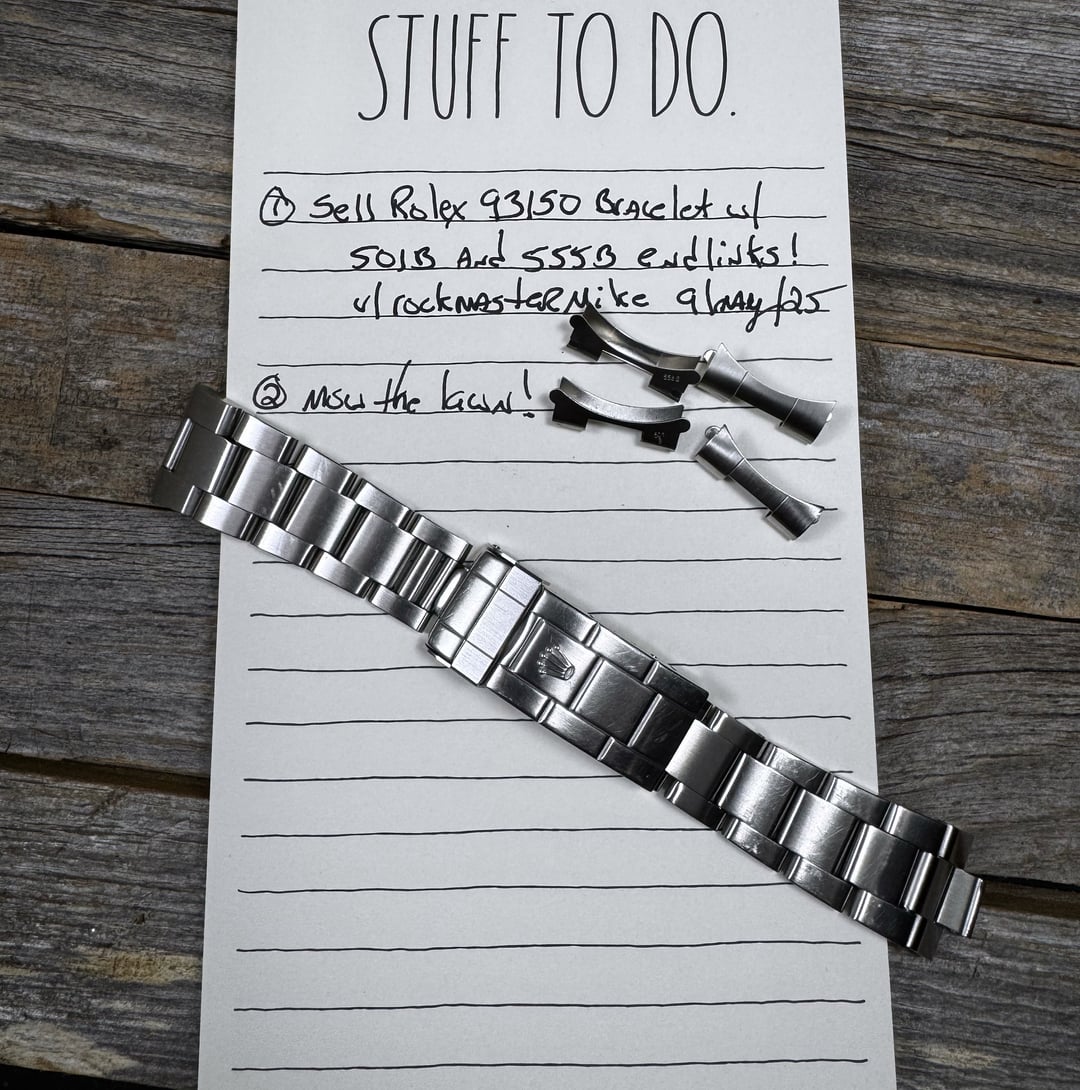 STUFF TO DO.
① Sell Rolex 93150 Bracelet w/
501B And 555B endlinks!
u/rockmasterMike 9/MAY/25
② Mow the lawn!